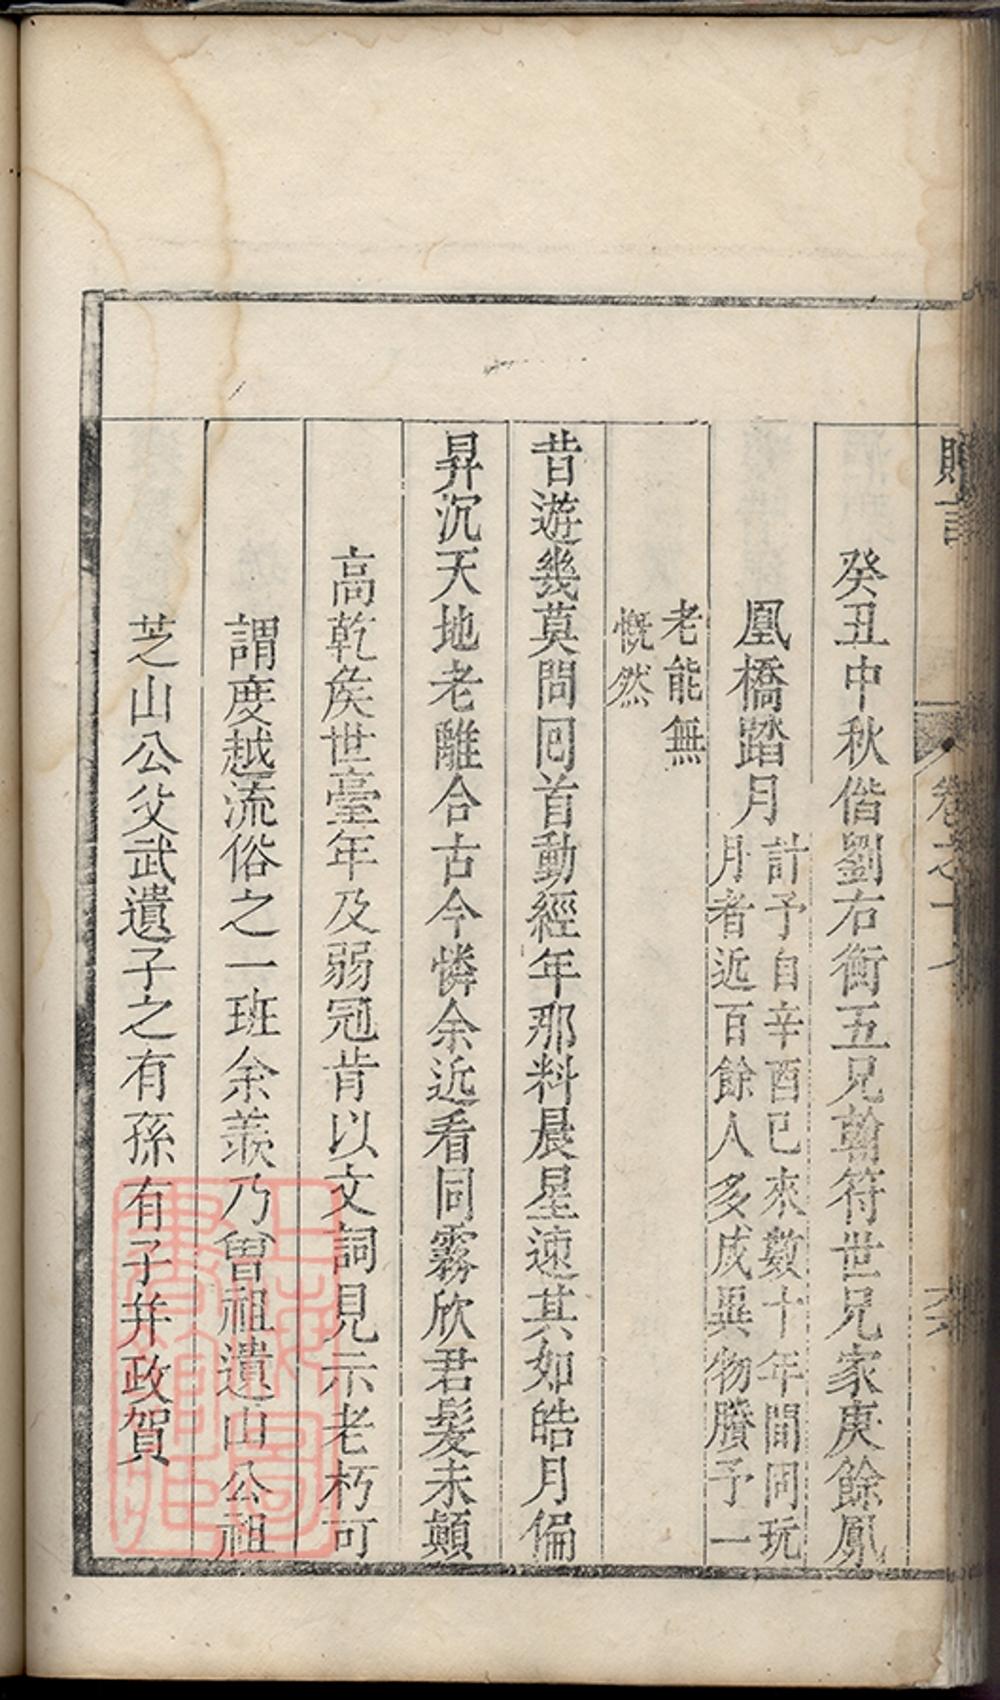 癸丑中秋偕劉右衡五兄翰符世兄家庚餘鳳
凰橋踏月
計予自辛酉已來數十年間同玩
月者近百餘人多成異物賸予一
老能無
慨然
昔遊幾莫問回首動經年那料晨星速其如皓月偏
昇沉天地老離合古今憐余近看同霧欣君髮未顛
高乾矦世臺年及弱冠肯以文詞見示老朽可
謂度越流俗之一班余羨乃曾祖遺山公祖
芝山公父武遺子之有孫有子并政賀